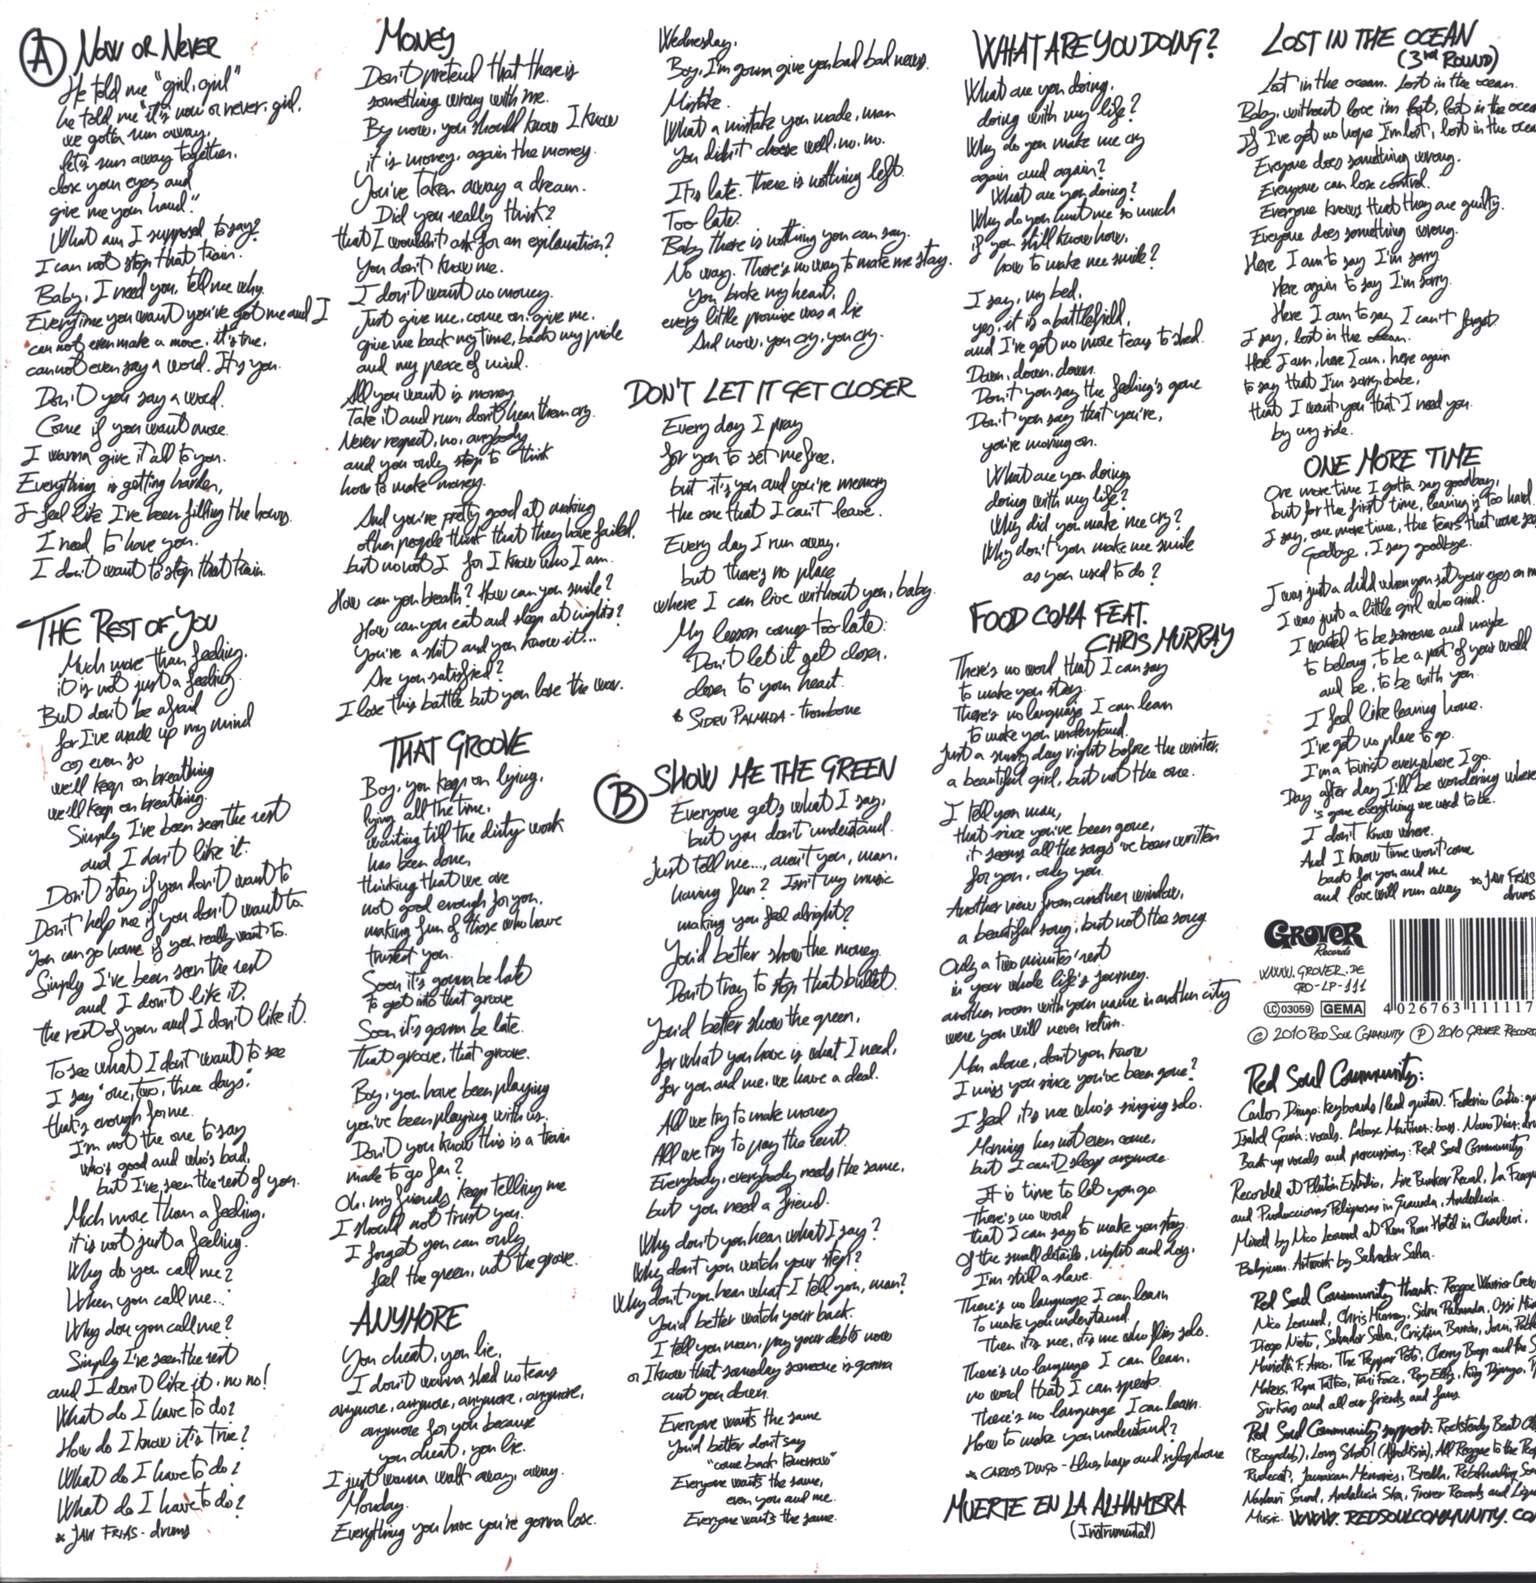 A NOW OR NEVER
He told me "girl, girl"
he told me "it's now or never, girl,
we gotta run away,
let's run away together,
close your eyes and
give me your hand."
What am I supposed to say?
I can not stop that train.
Baby, I need you, tell me why.
Everytime you want you've got me and I
can not even make a move, it's true,
cannot even say a word. It's you.
Don't you say a word.
Come if you want more.
I wanna give it all to you.
Everything is getting harder,
I feel like I've been filling the hours.
I need to have you.
I don't want to stop that train.
THE REST OF YOU
Much more than feeling.
it is not just a feeling.
But don't be afraid
for I've made up my mind
cos even so
we'll keep on breathing
we'll keep on breathing.
Simply I've been seen the rest
and I don't like it.
Don't stay if you don't want to
Don't help me if you don't want to.
you can go home if you really want to.
Simply I've been seen the rest
and I don't like it.
the rest of you and I don't like it.
To see what I don't want to see
I say "one, two, three days,"
that's enough for me.
I'm not the one to say
who's good and who's bad,
but I've seen the rest of you.
Much more than a feeling,
it is not just a feeling.
Why do you call me?
When you call me...
Why dou you call me?
Simply I've seen the rest
and I don't like it. no no!
What do I have to do?
How do I know it's true?
What do I have to do?
What do I have to do?
* JAVI FRIAS - drums
MONEY
Don't pretend that there is
something wrong with me.
By now, you should know I know
it is money, again the money.
You've taken away a dream.
Did you really think?
that I wouldn't ask for an explanation?
You don't know me.
I don't want no money.
Just give me, come on, give me.
give me back my time, back my pride
and my peace of mind.
All you want is money
Take it and run, don't hear them cry.
Never repent, no, anybody
and you only stop to think
how to make money.
And you're pretty good at making
other people think that they have failed,
but no not I for I know who I am.
How can you breath? How can you smile?
How can you eat and sleep at nights?
You're a shit and you know it...
Are you satisfied?
I lose this battle but you lose the war.
THAT GROOVE
Boy, you keep on lying,
lying all the time,
waiting till the dirty work
has been done,
thinking that we are
not good enough for you,
making fun of those who have
trusted you.
Soon it's gonna be late
to get into that groove
Soon it's gonna be late.
That groove, that groove.
Boy, you have been playing
you've been playing with us.
Don't you know this is a train
made to go far?
Oh, my friends keep telling me
I should not trust you.
I forget you can only
feel the green, not the groove.
ANYMORE
You cheat, you lie,
I don't wanna shed no tears
anymore, anymore, anymore, anymore,
anymore for you because
you cheat, you lie.
I just wanna walk away, away.
Monday.
Everything you have you're gonna lose.
Wednesday.
Boy, I'm gonna give you bad bad news.
Mistake.
What a mistake you made, man
You didn't choose well, no, no.
It's late. There is nothing left.
Too late.
Baby there is nothing you can say.
No way. There's no way to make me stay.
You broke my heart,
every little promise was a lie
And now, you cry, you cry.
DON'T LET IT GET CLOSER
Every day I pray
for you to set me free,
but it's you and you're memory
the one that I can't leave.
Every day I run away,
but there's no place
where I can live without you, baby.
My lesson comes too late:
Don't let it get closer,
closer to your heart.
* SIDEU PALMADA - trombone
B SHOW ME THE GREEN
Everyone gets what I say,
but you don't understand.
Just tell me..., aren't you, man,
having fun? Isn't my music
making you feel alright?
You'd better show the money.
Don't tray to stop that bullet.
You'd better show the green,
for what you have is what I need,
for you and me, we have a deal.
All we try to make money
All we try to pay the rent.
Everybody, everybody needs the same,
but you need a friend.
Why don't you hear what I say?
Why don't you watch your step?
Why don't you hear what I tell you, man?
You'd better watch your back.
I tell you man, pay your debts now
or I know that someday someone is gonna
cut you down.
Everyone wants the same
You'd better don't say
"come back tomorrow"
Everyone wants the same,
even you and me.
Everyone wants the same.
WHAT ARE YOU DOING?
What are you doing,
doing with my life?
Why do you make me cry
again and again?
What are you doing?
Why do you hurt me so much
if you still know how,
how to make me smile?
I say, my bed,
yes, it is a battlefield,
and I've got no more tears to shed.
Down, down, down.
Don't you say the feeling's gone
Don't you say that you're,
you're moving on.
What are you doing
doing with my life?
Why did you make me cry?
Why don't you make me smile
as you used to do?
FOOD COMA FEAT.
CHRIS MURRAY
There's no word that I can say
to make you stay.
There's no language I can learn
to make you understand.
Just a sunny day right before the winter,
a beautiful girl, but not the one.
I tell you man,
that since you've been gone,
it seems all the songs 've been written
for you, only you.
Another view from another window,
a beautiful song, but not the song
Only a two minutes' rest
in your whole life's journey.
another room with your name in another city
were you will never return.
Man alone, don't you know
I miss you since you've been gone?
I feel it's me who's singing solo.
Morning has not even come,
but I can't sleep anymore.
It is time to let you go.
There's no word
that I can say to make you stay.
Of the small details, night and day,
I'm still a slave.
There's no language I can learn
To make you understand.
Then it's me, it's me who flies solo.
There's no language I can learn,
no word that I can speak.
There's no language I can learn.
How to make you understand?
* CARLOS DINGO - blues harp and xylophone
MUERTE EN LA ALHAMBRA
(Instrumental)
LOST IN THE OCEAN
(3rd ROUND)
Lost in the ocean. Lost in the ocean.
Baby, without love i'm lost, lost in the ocea
If I've got no hope I'm lost, lost in the ocea
Everyone does something wrong.
Everyone can lose control.
Everyone knows that they are guilty.
Everyone does something wrong.
Here I am to say I'm sorry
Here again to say I'm sorry.
Here I am to say I can't forget.
I say, lost in the ocean.
Here I am, here I am, here again
to say that I'm sorry, babe,
that I want you that I need you
by my side.
ONE MORE TIME
One more time I gotta say goodbay,
but for the first time, leaving is too hard.
I say, one more time, the tears that
Goodbye, I say goodbye.
I was just a child when you set your eyes on m
I was just a little girl who cried.
I wanted to be someone and maybe
to belong, to be a part of your world
and be, to be with you.
I feel like leaving home.
I've got no place to go.
I'm a tourist everywhere I go.
Day after day I'll be wondering where
's gone everything we used to be.
I don't know where.
And I know time won't come
back for you and me
and love will run away
* JAVI FRIAS
drums
GROVER
Records
WWW.GROVER.DE
GRO-LP-111
LC 03059 GEMA
4 026763 111117
© 2010 RED SOUL COMMUNITY ℗ 2010 GROVER RECORD
Red Soul Community:
Carlos Dingo: keyboards/lead guitar. Federico Castro: gu
Isabel García: vocals. Martínez: bass. Nono Díaz: dru
Back up vocals and percussion: Red Soul Community.
Recorded at Plutón Estudio, Live Bunker Rural, La Fragu
and Producciones Peligrosas in Granada, Andalucía.
Mixed by Nico Leonard at Pum Pum Hotel in Charleroi,
Belgium. Artwork by Salvador Salva.
Red Soul Community thank: Reggae Warrior Crew
Nico Leonard, Chris Murray, Sideu Palmada, Ossi
Diego Nieto, Salvador Salva, Cristina
Marietta F. Arco, The Pepper Pots, Cherry Boop and the S
Makers, Tattoo, Toni Face, Roy Ellis, King Django,
Sir Kong and all our friends and fans.
Red Soul Community support: Rocksteady Beat
Long Shot! All Reggae to the
Rudecat, Jamaican Memories, Sou
Sound, Andalucía Ska, Grover Records and
Music. WWW.REDSOULCOMMUNITY.CO